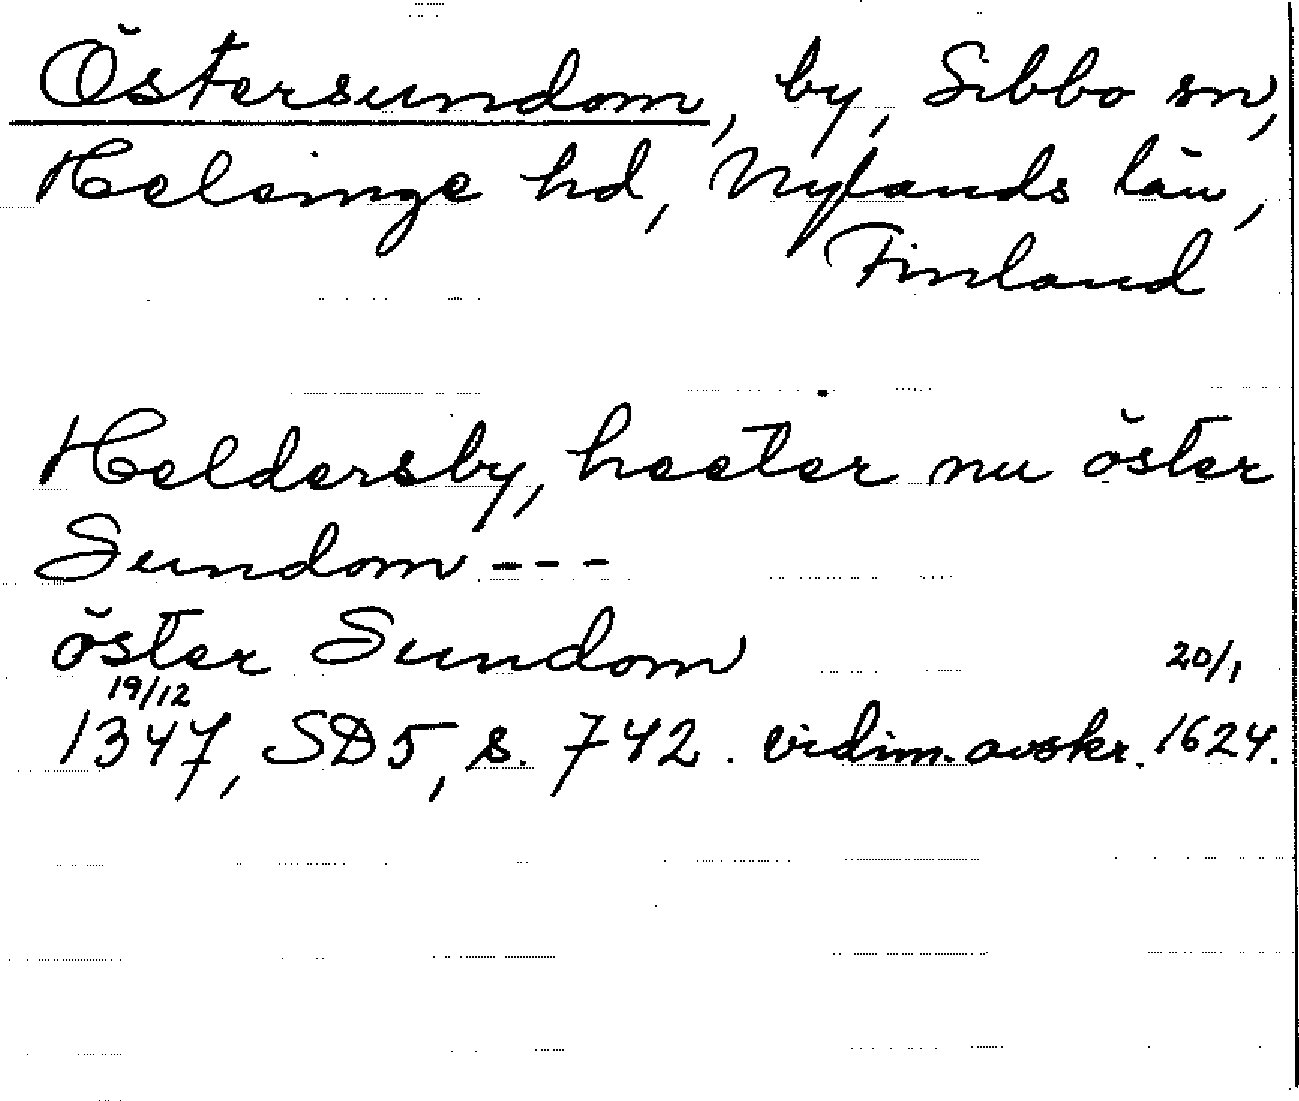 Östersundom, by, Sibbo sn,
Helsinge hd, Nylands län,
Finland
Heldersby, heeter nu öster
Sundom ---
öster Sundom
19/12 20/1
1347, SD5, s. 742. vidim. avskr. 1624.